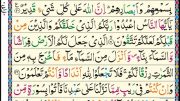 بِسَمْعِهِمْ وَأَبْصَارِهِمْ إِنَّ اللَّهَ عَلَىٰ كُلِّ شَيْءٍ قَدِيرٌ
يَا أَيُّهَا النَّاسُ اعْبُدُوا رَبَّكُمُ الَّذِي خَلَقَكُمْ وَالَّذِينَ مِنْ
قَبْلِكُمْ لَعَلَّكُمْ تَتَّقُونَ الَّذِي جَعَلَ لَكُمُ الْأَرْضَ فِرَاشًا
وَالسَّمَاءَ بِنَاءً وَأَنْزَلَ مِنَ السَّمَاءِ مَاءً فَأَخْرَجَ بِهِ مِنَ
الثَّمَرَاتِ رِزْقًا لَكُمْ فَلَا تَجْعَلُوا لِلَّهِ أَنْدَادًا وَأَنْتُمْ